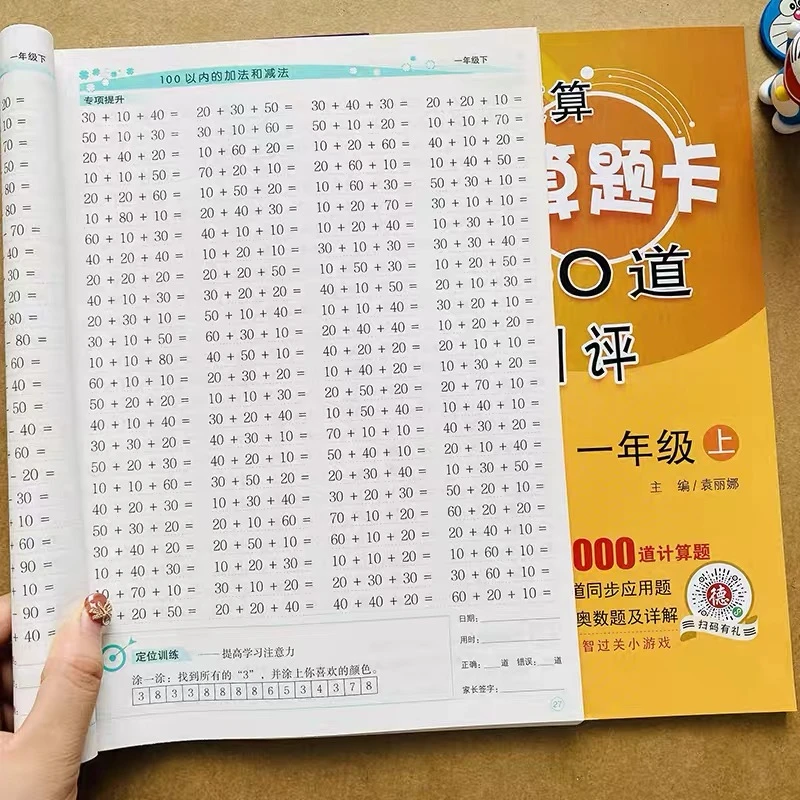 一年级下
20 =
10 =
70 =
50 =
80 =
70 =
40 =
30 =
20 =
80 =
80 =
60 =
40 =
60 =
20 =
30 =
10 =
40 =
60 =
90 =
10 =
90 =
40 =
100 以内的加法和减法
一年级下
专项提升
30 + 10 + 40 = 20 + 30 + 50 = 30 + 40 + 30 = 20 + 20 + 10 =
50 + 10 + 30 = 30 + 10 + 60 = 50 + 10 + 20 = 10 + 10 + 70 =
20 + 40 + 20 = 10 + 60 + 20 = 10 + 20 + 60 = 40 + 10 + 20 =
10 + 10 + 50 = 70 + 20 + 10 = 20 + 40 + 40 = 10 + 40 + 50 =
20 + 20 + 30 = 10 + 50 + 20 = 10 + 60 + 30 = 50 + 30 + 10 =
10 + 80 + 10 = 20 + 40 + 30 = 10 + 20 + 70 = 10 + 10 + 10 =
60 + 10 + 30 = 40 + 10 + 20 = 10 + 30 + 30 = 30 + 30 + 40 =
40 + 20 + 40 = 10 + 20 + 10 = 30 + 10 + 10 = 10 + 20 + 50 =
20 + 20 + 20 = 20 + 20 + 50 = 10 + 50 + 30 = 20 + 10 + 10 =
40 + 10 + 30 = 30 + 20 + 20 = 60 + 20 + 20 = 30 + 10 + 20 =
20 + 30 + 10 = 50 + 10 + 40 = 10 + 40 + 50 = 10 + 20 + 20 =
10 + 10 + 80 = 40 + 50 + 10 = 30 + 10 + 50 = 20 + 30 + 50 =
60 + 10 + 10 = 20 + 30 + 20 = 40 + 20 + 20 = 20 + 70 + 10 =
50 + 20 + 20 = 10 + 20 + 40 = 20 + 50 + 20 = 10 + 40 + 10 =
40 + 40 + 10 = 30 + 10 + 40 = 10 + 50 + 40 = 20 + 10 + 40 =
30 + 20 + 30 = 10 + 40 + 50 = 70 + 10 + 10 = 30 + 40 + 10 =
50 + 20 + 30 = 30 + 50 + 20 = 40 + 20 + 30 = 10 + 10 + 20 =
10 + 10 + 60 = 20 + 40 + 20 = 20 + 30 + 30 = 50 + 40 + 10 =
50 + 30 + 10 = 20 + 10 + 60 = 30 + 20 + 50 = 60 + 20 + 20 =
30 + 40 + 20 = 20 + 50 + 10 = 70 + 10 + 20 = 10 + 60 + 10 =
+ 70 + 10 = 30 + 10 + 20 = 20 + 30 + 40 = 30 + 10 + 50 =
+ 20 + 50 = 20 + 20 + 40 = 40 + 40 + 20 = 60 + 20 + 10 =
定位训练 ——提高学习注意力
涂一涂：找到所有的“3”，并涂上你喜欢的颜色。
3 8 3 3 8 8 8 8 6 5 3 4 3 7 8
日期：
用时：
正确：道 错误：道
家长签字：
27
算
算题卡
0道
评
一年级 上
主 编/袁丽娜
000道计算题
道同步应用题
奥数题及详解
智过关小游戏
德
扫码有礼